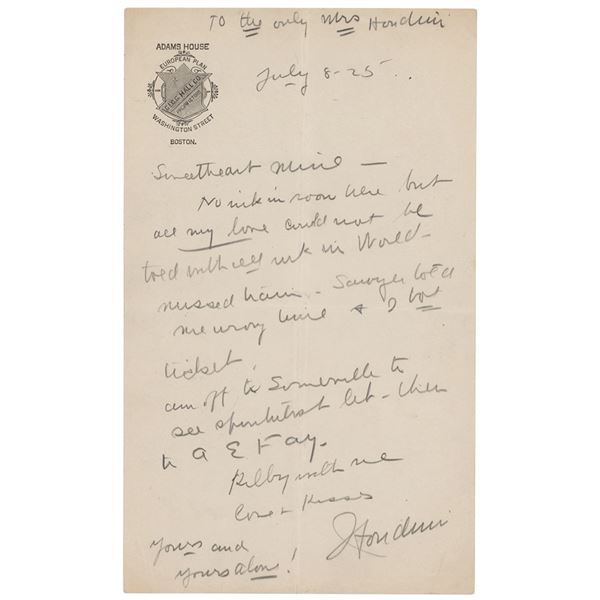 TO the only Mrs Houdini
ADAMS HOUSE
EUROPEAN PLAN
GEO. G. HALL CO.
PROPRIETORS
WASHINGTON STREET
BOSTON.
July 8-25..
Sweetheart Mine —
No ink in room here but
all my love could not be
told with all ink in World-
missed train - Sawyer told
me wrong time & I lost
ticket.
am off to Somerville to
see spiritist - then
to A E Fay.
with me
Love + Kisses
Houdini
yours and
yours alone!